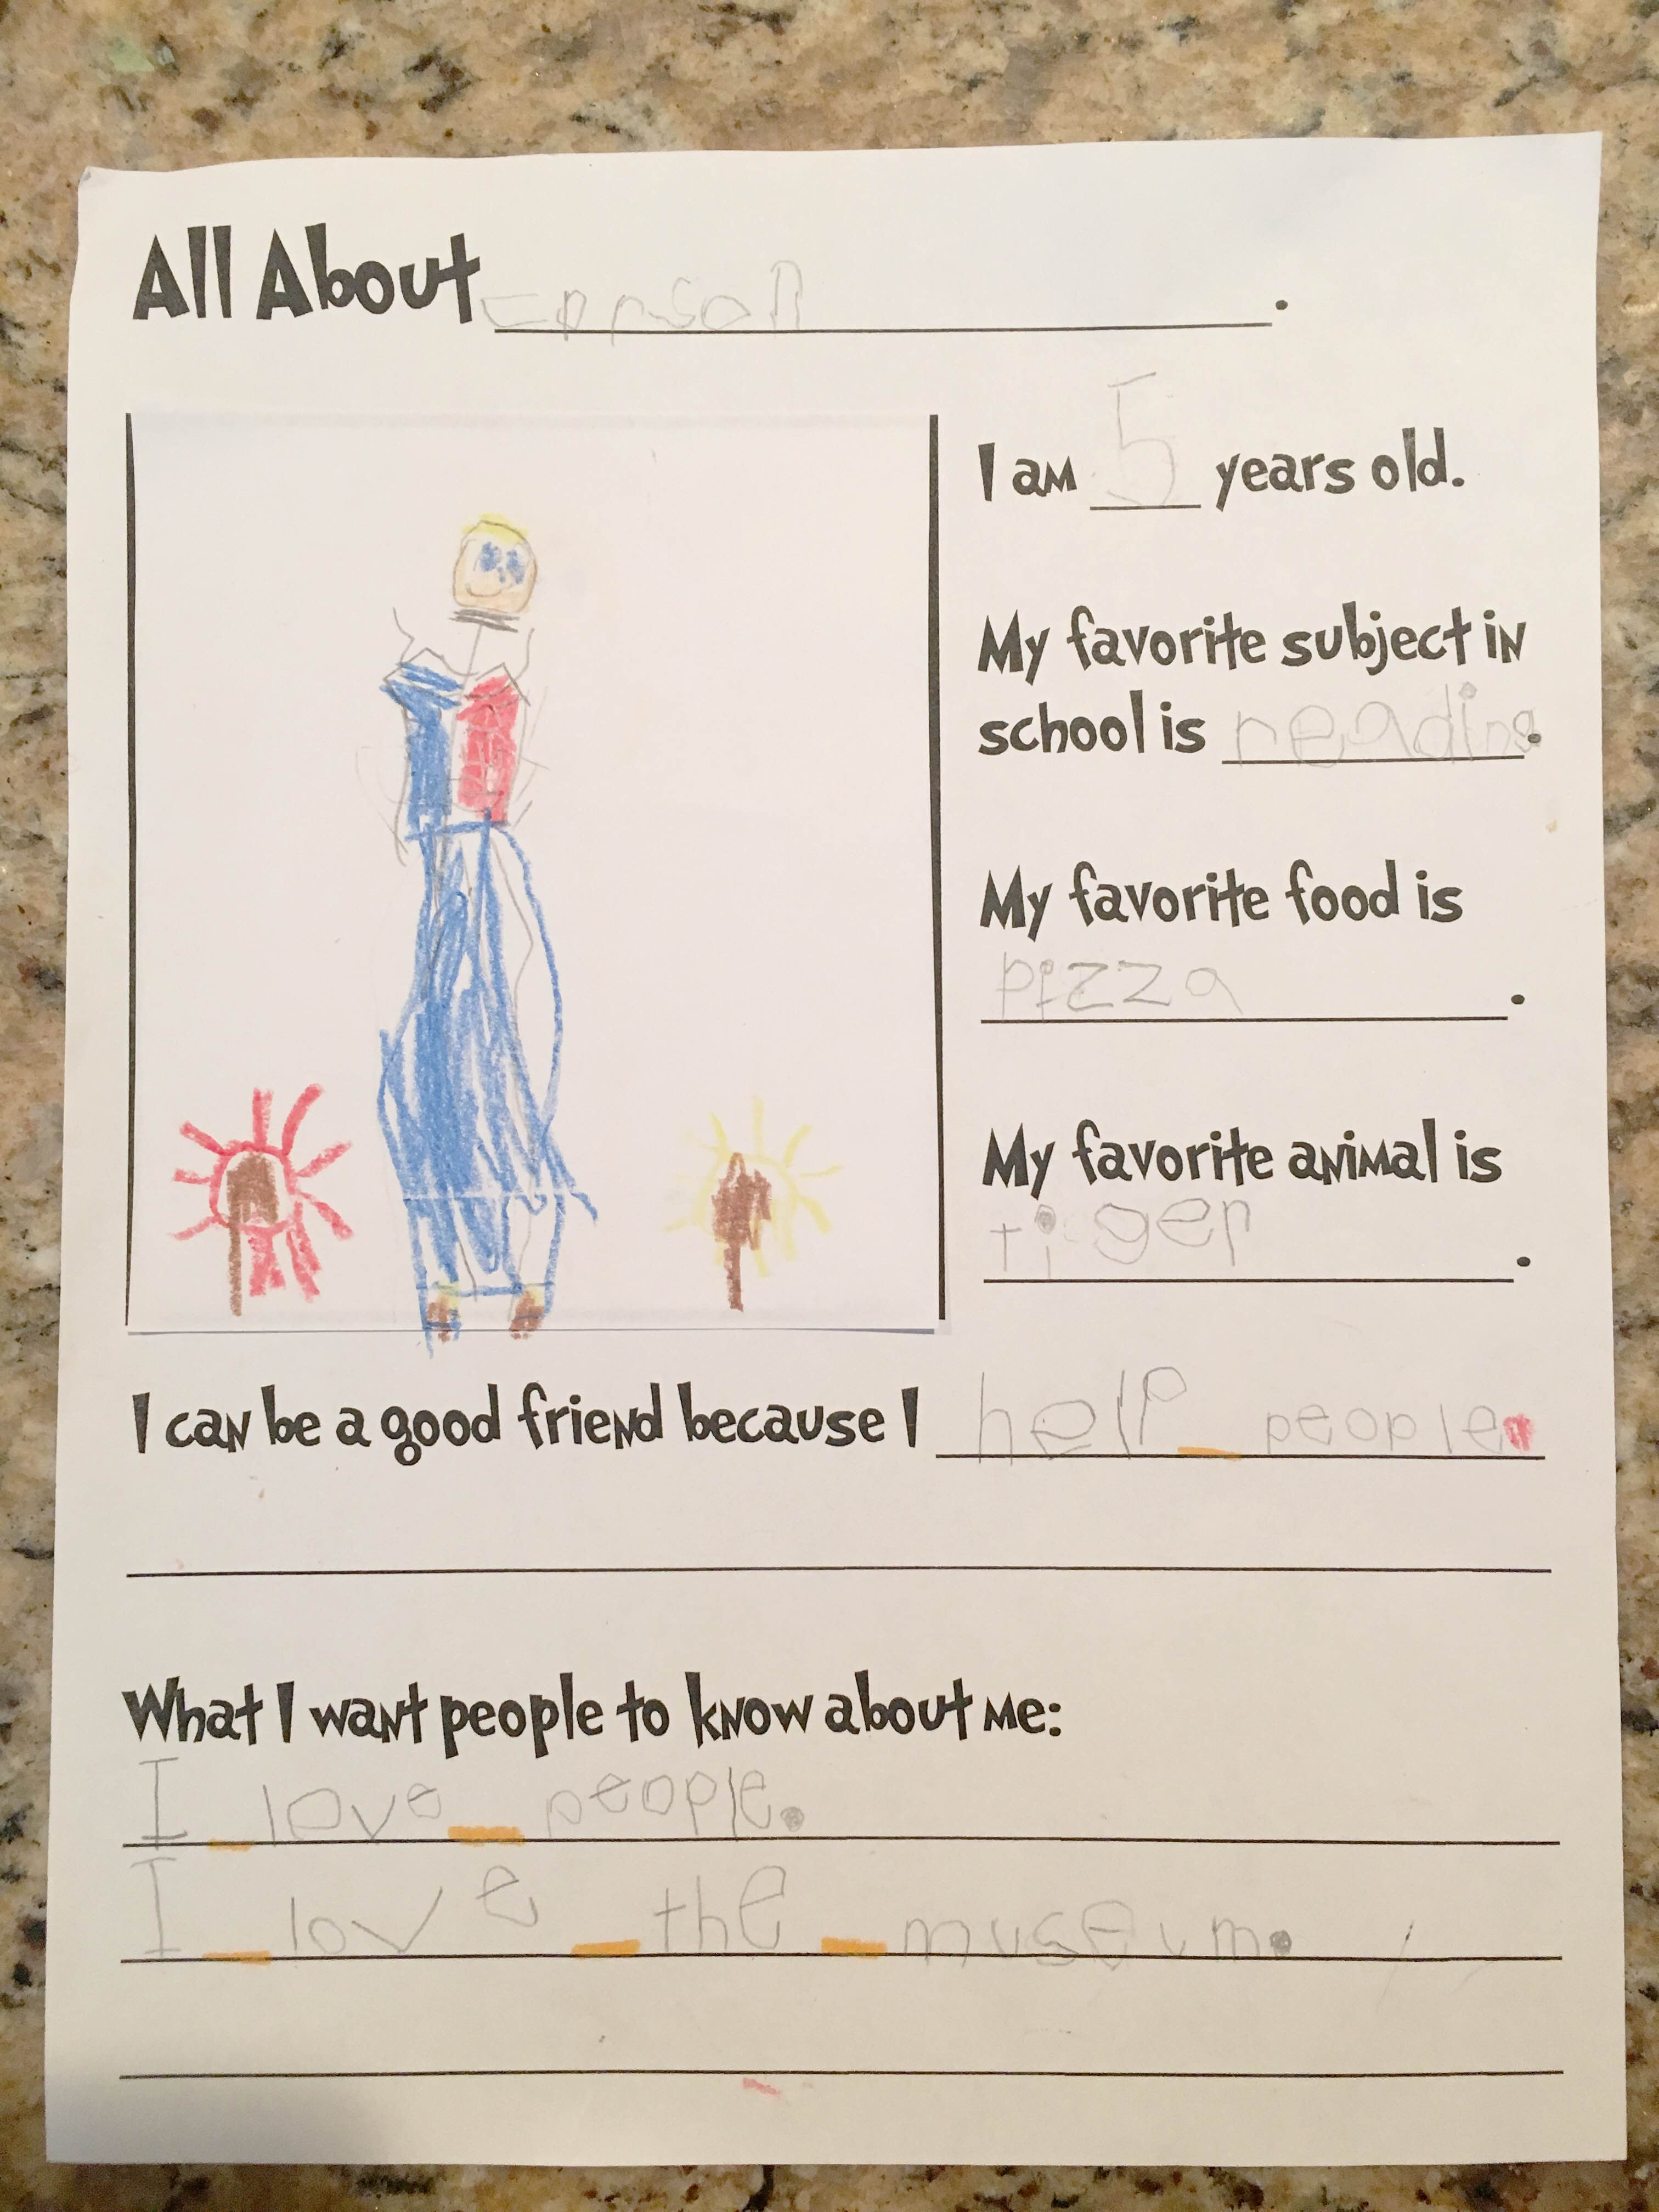 All About .
I am 5 years old.
My favorite subject in
school is reading.
My favorite food is
pizza.
My favorite animal is
tiger.
I can be a good friend because I help people.
What I want people to know about me:
I love people.
I love the museum.